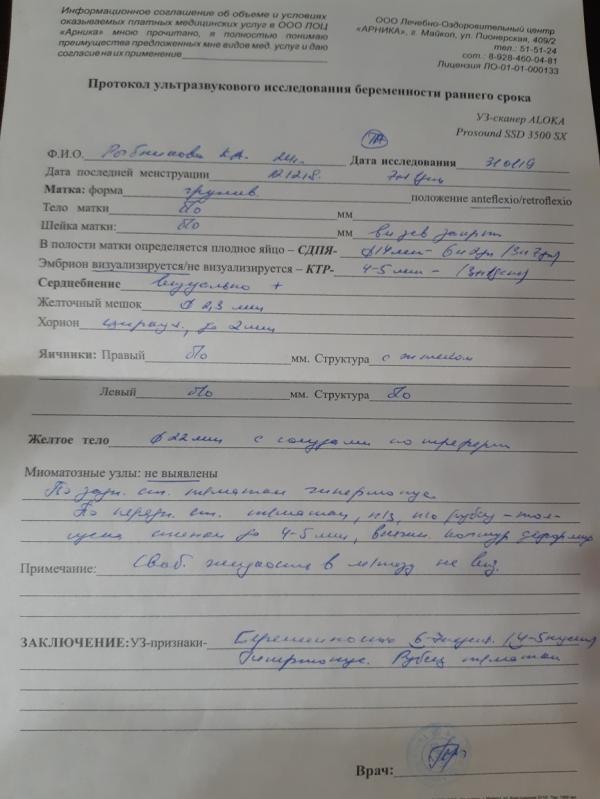 Информационное соглашение об объеме и условиях
оказываемых платных медицинских услуг в ООО ЛОЦ
«Арника» мною прочитано, я полностью понимаю
преимущества предложенных мне видов мед. услуг и даю
согласие на их применение
ООО Лечебно-Оздоровительный центр
«АРНИКА», г. Майкоп, ул. Пионерская, 409/2
тел.: 51-51-24
сот.: 8-928-460-04-81
Лицензия ЛО-01-01-000133
Протокол ультразвукового исследования беременности раннего срока
УЗ-сканер ALOKA
Prosound SSD 3500 SX
Ф.И.О. Дата исследования 310119
Дата последней менструации 121218.
Матка: форма грушев. положение anteflexio/retroflexio
Тело матки б/о мм
Шейка матки: б/о мм в/зев закрыт
В полости матки определяется плодное яйцо – СДПЯ- ф14мм-
Эмбрион визуализируется/не визуализируется – КТР- 4-5мм -
Сердцебиение визуально +
Желточный мешок ф 2,3 мм
Хорион циркул., до 2мм
Яичники: Правый б/о мм. Структура с ж телом
Левый б/о мм. Структура б/о
Желтое тело ф 22мм с сосудами по периферии
Миоматозные узлы: не выявлены
По задн. ст. гипертонус.
По передн. ст. н/з, рубец – тол-
до 4-5 мм, контур
Примечание: Своб. жидкость в м/тазу не виз.
ЗАКЛЮЧЕНИЕ: УЗ-признаки- Беременности 6-7
Гипертонус. Рубец
Врач: